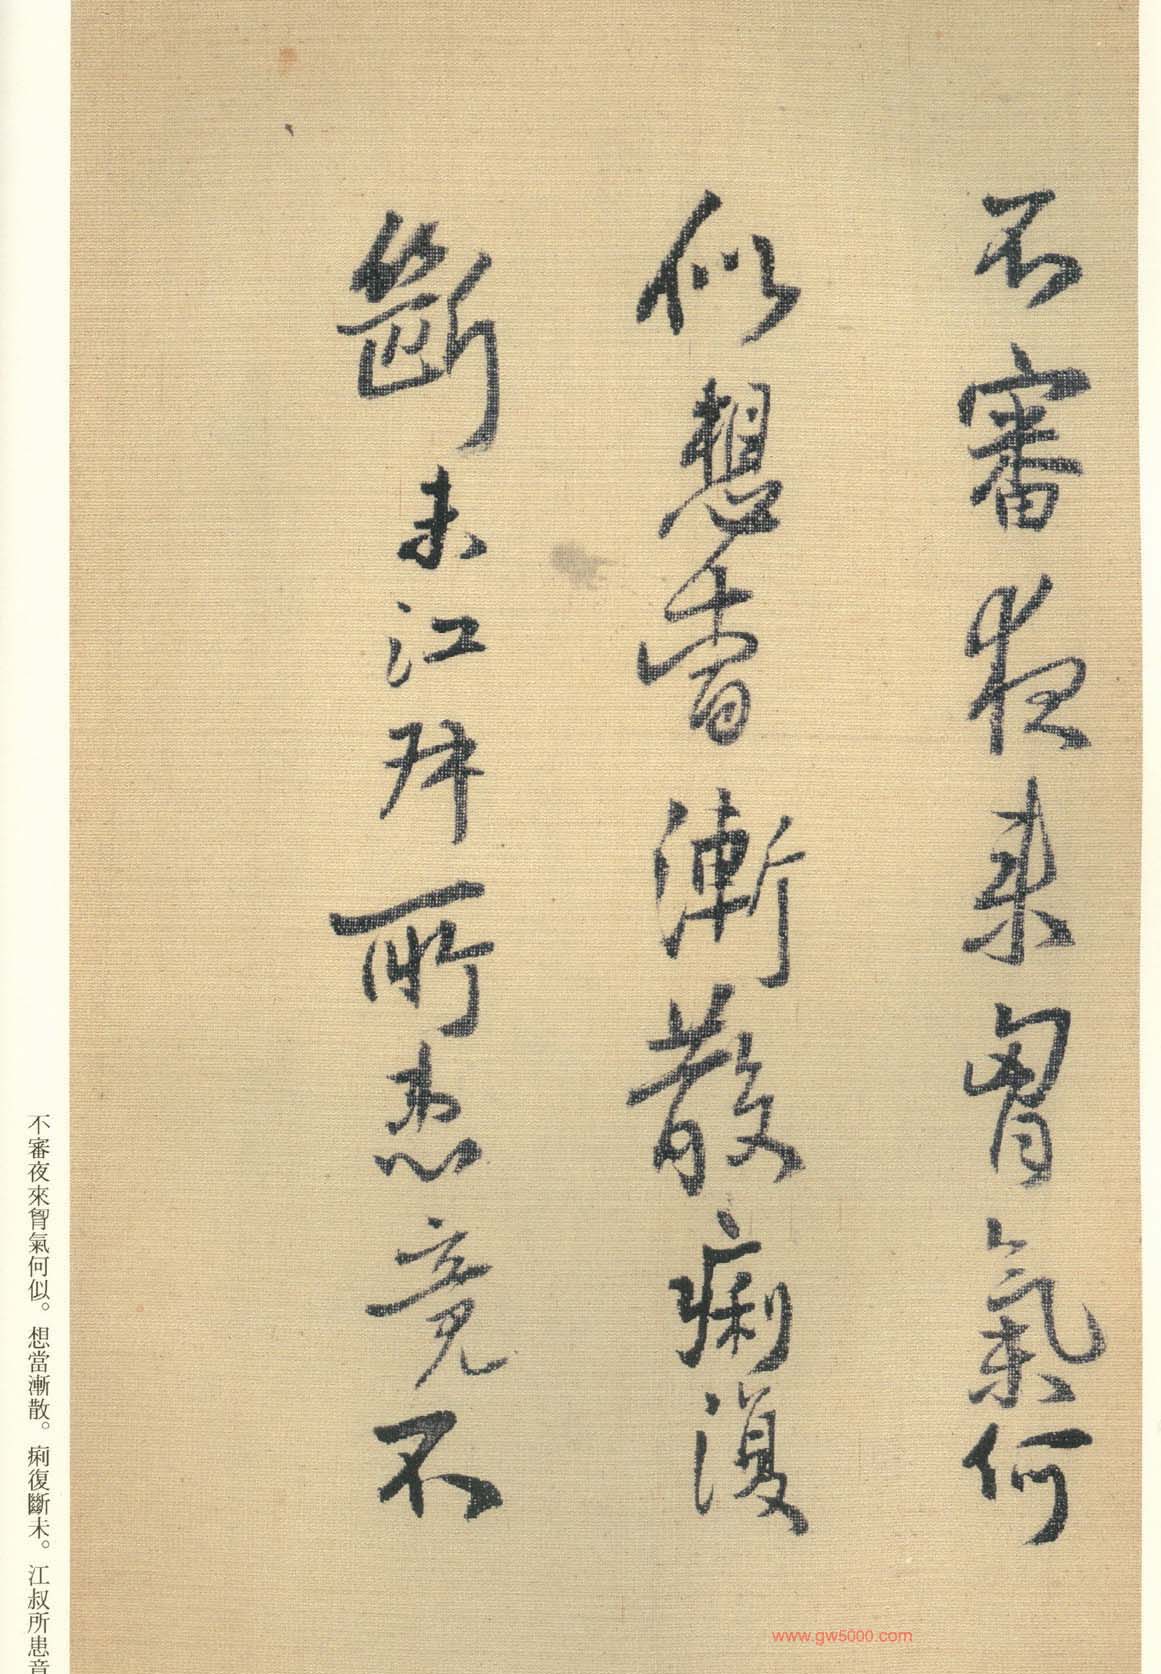 不審夜来胷氣何
似想當漸散痢復
斷未江叔所患竟不
不審夜來胷氣何似。想當漸散。痢復斷未。江叔所患竟
www.gw5000.com